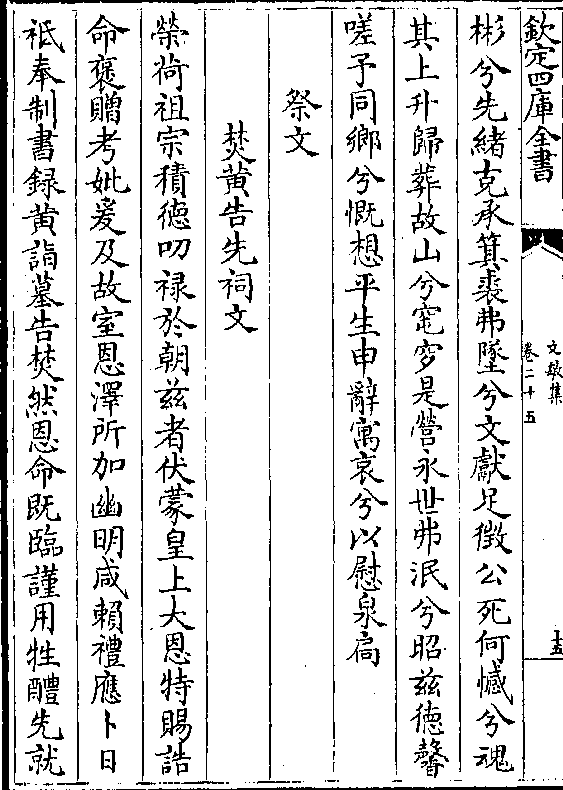 欽定四庫全書
文敏集
卷二十五
十五
彬兮先緒克承箕裘弗墜兮文獻足徴公死何憾兮魂
其上升歸葬故山兮窀穸是營永世弗泯兮昭兹徳馨
嗟予同鄉兮慨想平生申辭寓哀兮以慰泉扃
祭文
焚黄告先祠文
榮荷祖宗積徳叨禄於朝兹者伏蒙皇上大恩特賜誥
命褒贈考妣爰及故室恩澤所加幽明咸賴禮應卜日
祗奉制書録黄詣墓告焚然恩命既臨謹用牲醴先就